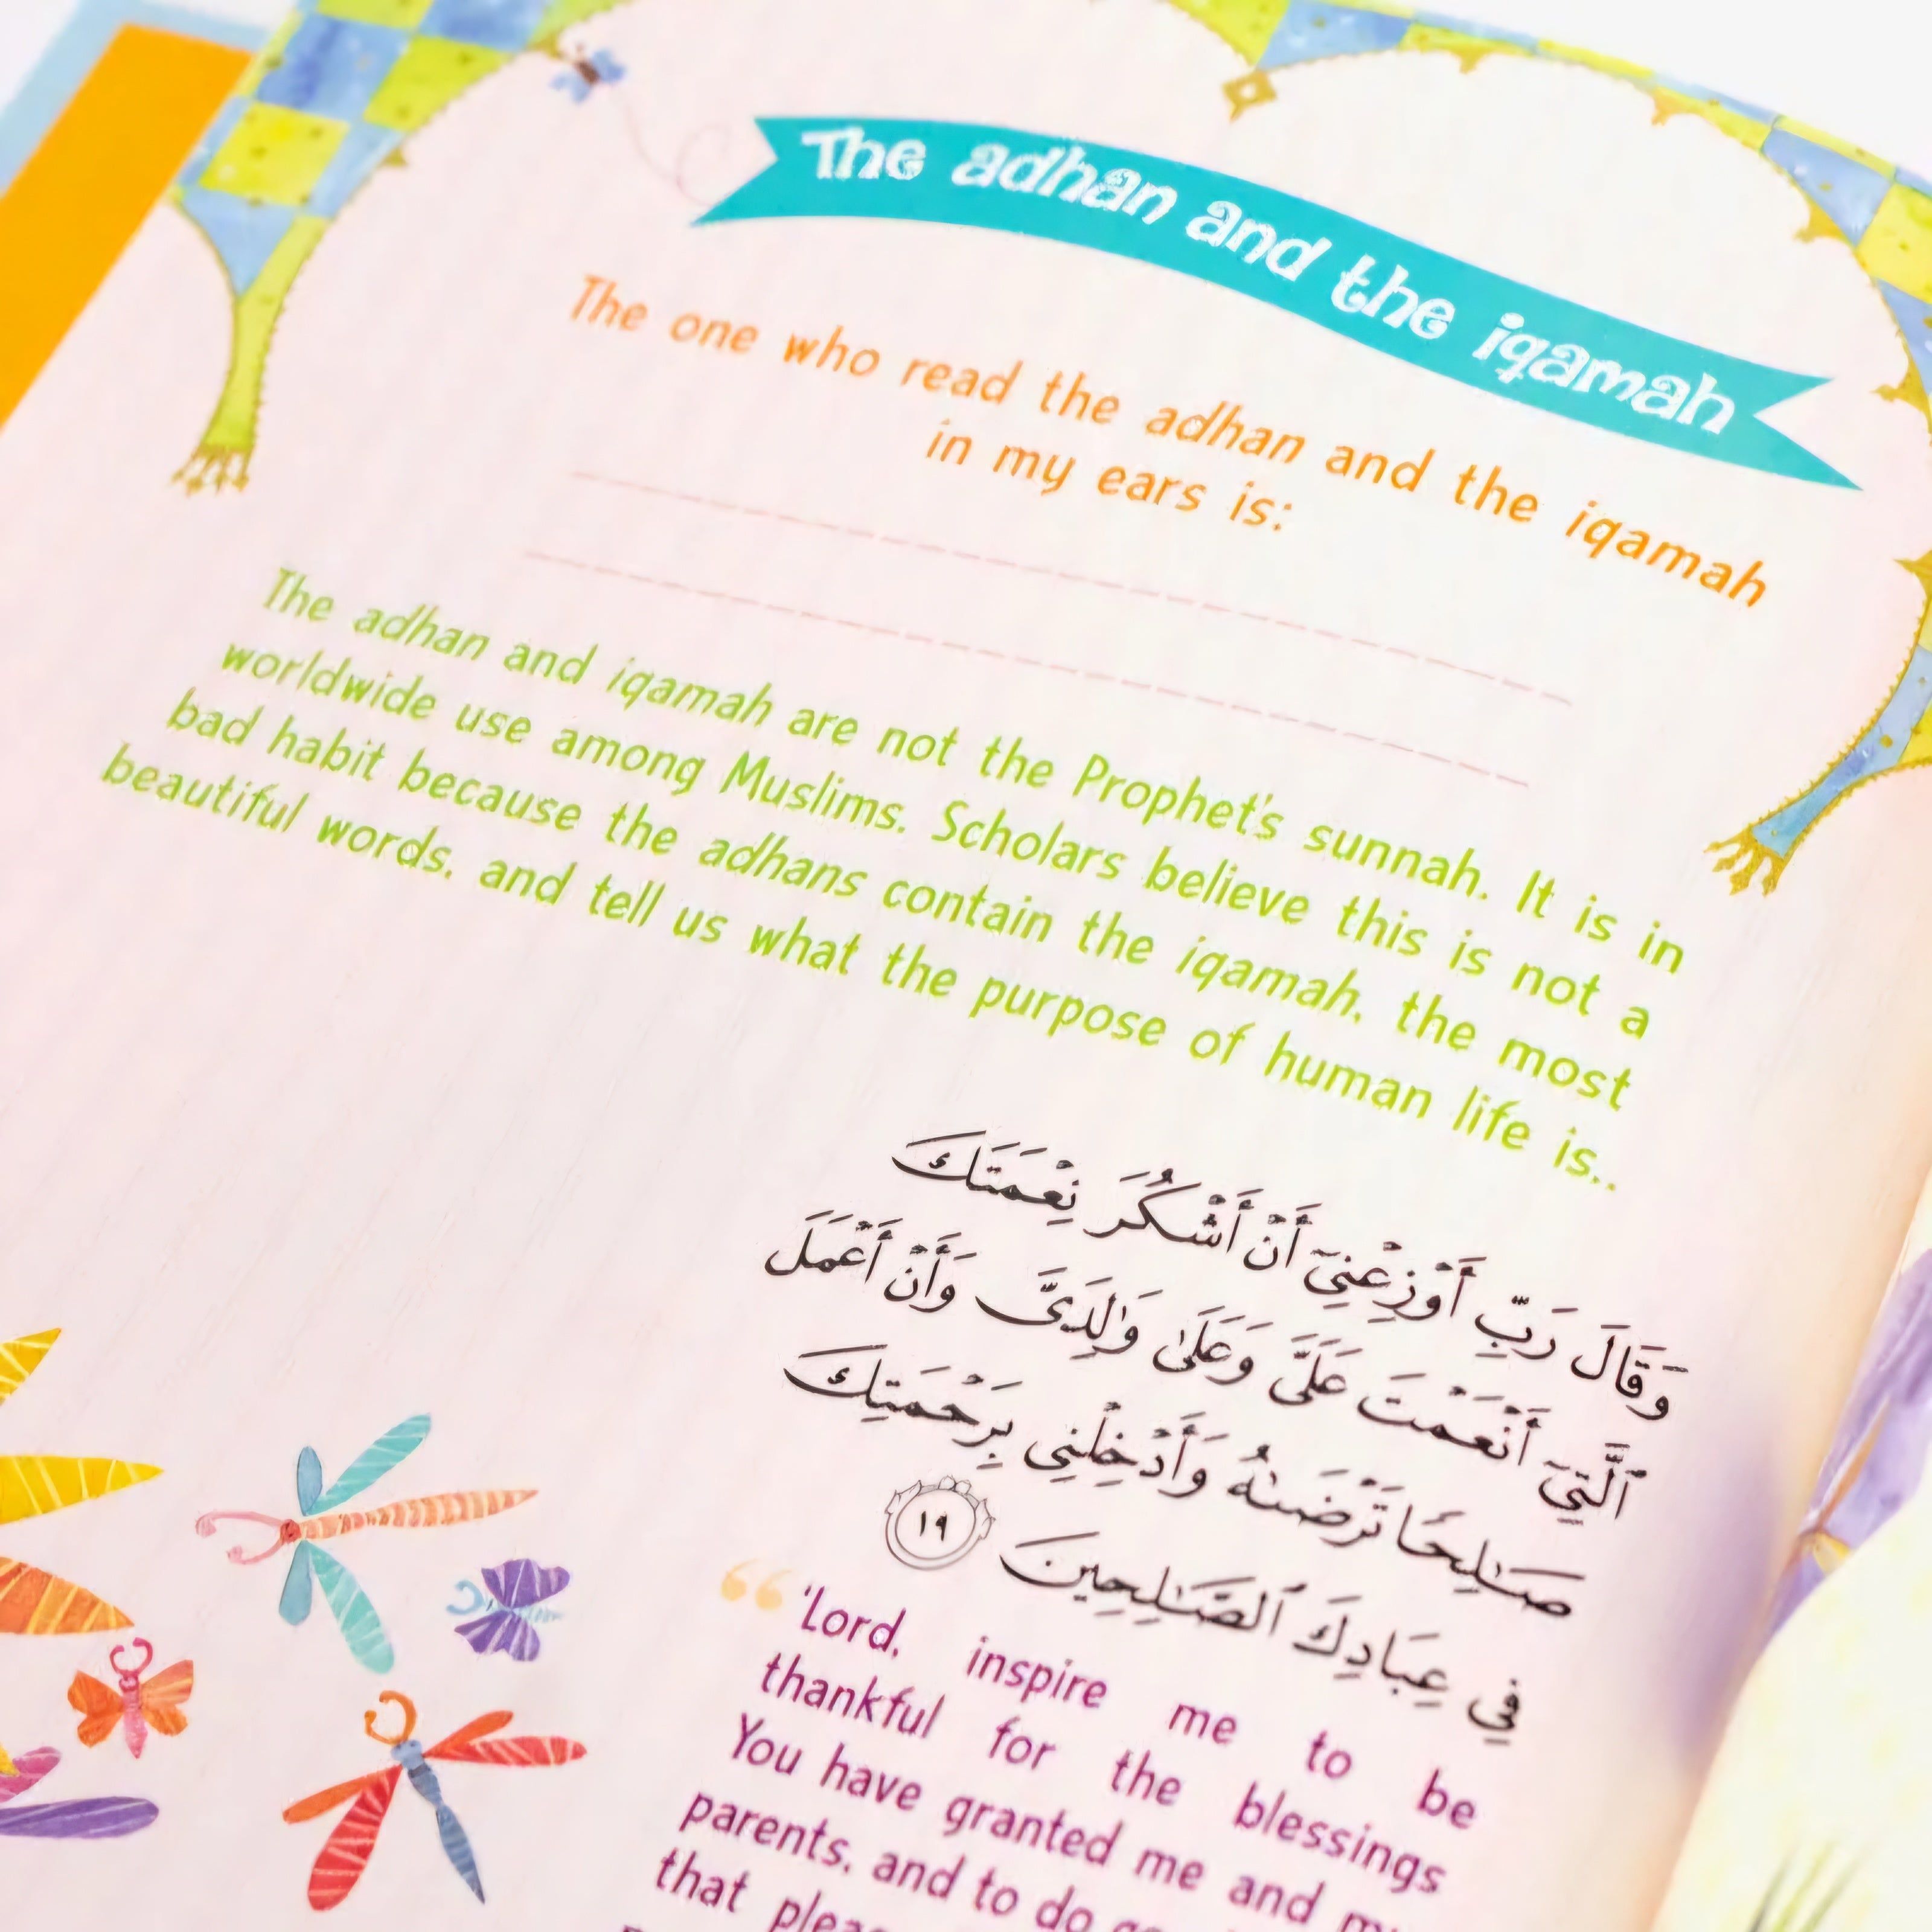 The adhan and the iqamah
The one who read the adhan and the iqamah
in my ears is:
The adhan and iqamah are not the Prophet's sunnah. It is in
worldwide use among Muslims. Scholars believe this is not a
bad habit because the adhans contain the iqamah, the most
beautiful words, and tell us what the purpose of human life is..
وَقَالَ رَبِّ أَوْزِعْنِىٓ أَنْ أَشْكُرَ نِعْمَتَكَ
ٱلَّتِىٓ أَنْعَمْتَ عَلَىَّ وَعَلَىٰ وَٰلِدَىَّ وَأَنْ أَعْمَلَ
صَـٰلِحًا تَرْضَىٰهُ وَأَدْخِلْنِى بِرَحْمَتِكَ
فِى عِبَادِكَ ٱلصَّـٰلِحِينَ ١٩
“'Lord, inspire me to be
thankful for the blessings
You have granted me and
parents, and to do
that